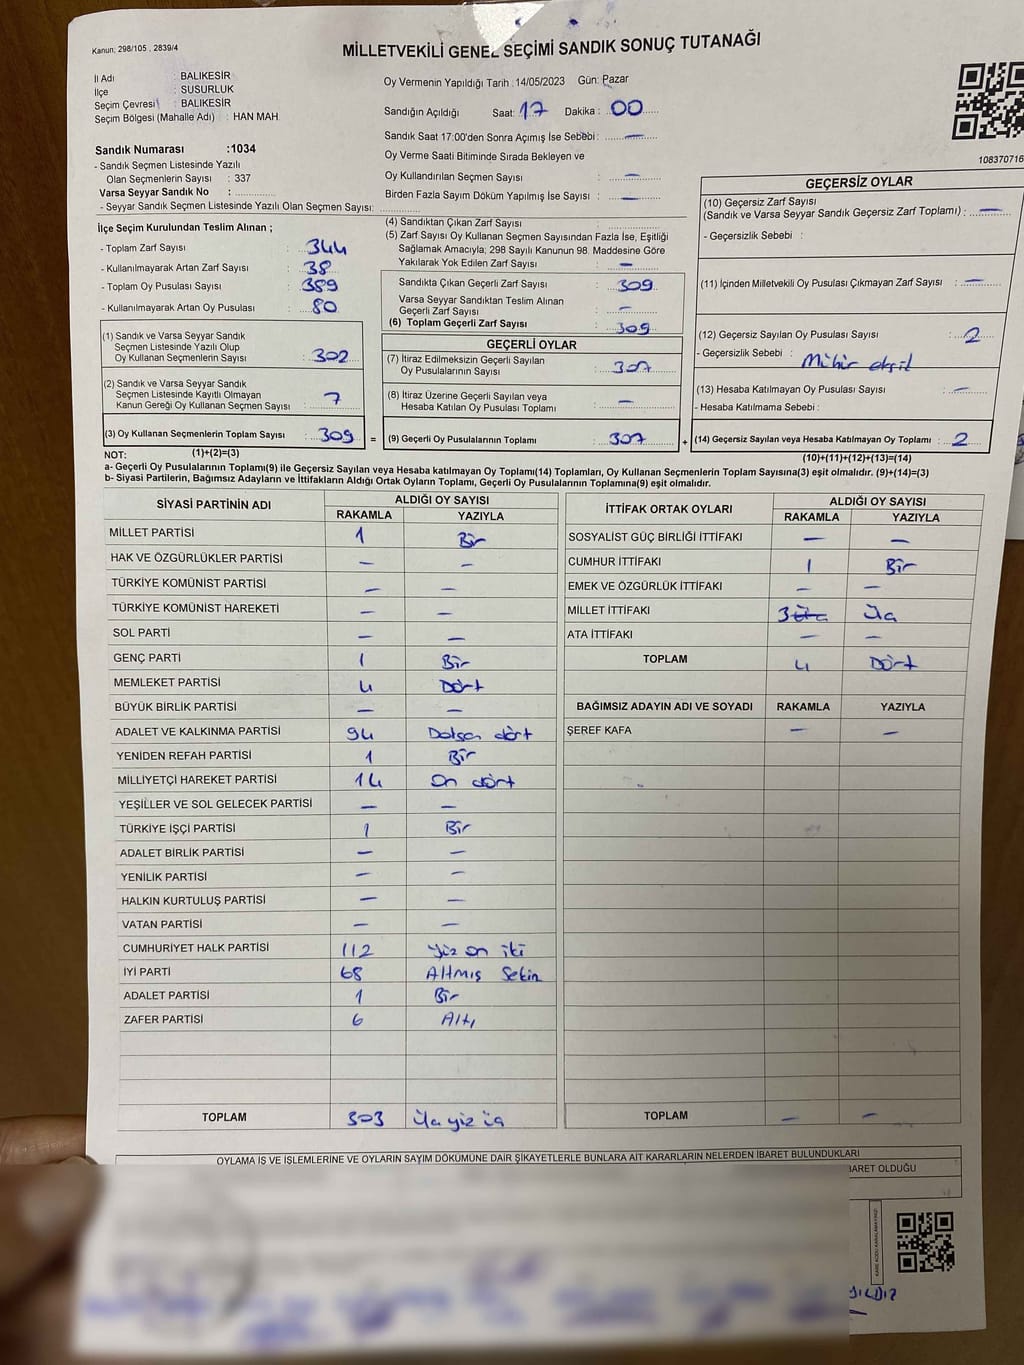 Kanun; 298/105 , 2839/4
MİLLETVEKİLİ GENEL SEÇİMİ SANDIK SONUÇ TUTANAĞI
İl Adı : BALIKESİR
İlçe : SUSURLUK
Seçim Çevresi : BALIKESİR
Seçim Bölgesi (Mahalle Adı) : HAN MAH.
Oy Vermenin Yapıldığı Tarih :14/05/2023 Gün: Pazar
Sandığın Açıldığı Saat: 17 Dakika : 00
Sandık Saat 17:00'den Sonra Açımış İse Sebebi : —
Oy Verme Saati Bitiminde Sırada Bekleyen ve
Oy Kullandırılan Seçmen Sayısı : —
Birden Fazla Sayım Döküm Yapılmış İse Sayısı : —
108370716
Sandık Numarası :1034
- Sandık Seçmen Listesinde Yazılı
Olan Seçmenlerin Sayısı : 337
Varsa Seyyar Sandık No :
- Seyyar Sandık Seçmen Listesinde Yazılı Olan Seçmen Sayısı:
İlçe Seçim Kurulundan Teslim Alınan ;
- Toplam Zarf Sayısı : 344
- Kullanılmayarak Artan Zarf Sayısı : 38
- Toplam Oy Pusulası Sayısı : 389
- Kullanılmayarak Artan Oy Pusulası : 80
(1) Sandık ve Varsa Seyyar Sandık
Seçmen Listesinde Yazılı Olup
Oy Kullanan Seçmenlerin Sayısı : 302
(2) Sandık ve Varsa Seyyar Sandık
Seçmen Listesinde Kayıtlı Olmayan
Kanun Gereği Oy Kullanan Seçmen Sayısı : 7
(3) Oy Kullanan Seçmenlerin Toplam Sayısı : 309 =
(4) Sandıktan Çıkan Zarf Sayısı :
(5) Zarf Sayısı Oy Kullanan Seçmen Sayısından Fazla İse, Eşitliği
Sağlamak Amacıyla; 298 Sayılı Kanunun 98. Maddesine Göre
Yakılarak Yok Edilen Zarf Sayısı : —
Sandıkta Çıkan Geçerli Zarf Sayısı : 309
Varsa Seyyar Sandıktan Teslim Alınan
Geçerli Zarf Sayısı : —
(6) Toplam Geçerli Zarf Sayısı : 309
GEÇERLİ OYLAR
(7) İtiraz Edilmeksizin Geçerli Sayılan
Oy Pusulalarının Sayısı : 307
(8) İtiraz Üzerine Geçerli Sayılan veya
Hesaba Katılan Oy Pusulası Toplamı : —
(9) Geçerli Oy Pusulalarının Toplamı : 307 +
GEÇERSİZ OYLAR
(10) Geçersiz Zarf Sayısı
(Sandık ve Varsa Seyyar Sandık Geçersiz Zarf Toplamı) : —
- Geçersizlik Sebebi :
(11) İçinden Milletvekili Oy Pusulası Çıkmayan Zarf Sayısı : —
(12) Geçersiz Sayılan Oy Pusulası Sayısı : 2
- Geçersizlik Sebebi : Mühür eksik
(13) Hesaba Katılmayan Oy Pusulası Sayısı : —
- Hesaba Katılmama Sebebi :
(14) Geçersiz Sayılan veya Hesaba Katılmayan Oy Toplamı : 2
NOT: (1)+(2)=(3) (10)+(11)+(12)+(13)=(14)
a- Geçerli Oy Pusulalarının Toplamı(9) ile Geçersiz Sayılan veya Hesaba katılmayan Oy Toplamı(14) Toplamları, Oy Kullanan Seçmenlerin Toplam Sayısına(3) eşit olmalıdır. (9)+(14)=(3)
b- Siyasi Partilerin, Bağımsız Adayların ve İttifakların Aldığı Ortak Oyların Toplamı, Geçerli Oy Pusulalarının Toplamına(9) eşit olmalıdır.
SİYASİ PARTİNİN ADI ALDIĞI OY SAYISI
RAKAMLA YAZIYLA
MİLLET PARTİSİ 1 Bir
HAK VE ÖZGÜRLÜKLER PARTİSİ — —
TÜRKİYE KOMÜNİST PARTİSİ — —
TÜRKİYE KOMÜNİST HAREKETİ — —
SOL PARTİ — —
GENÇ PARTİ 1 Bir
MEMLEKET PARTİSİ 4 Dört
BÜYÜK BİRLİK PARTİSİ — —
ADALET VE KALKINMA PARTİSİ 94 Doksan dört
YENİDEN REFAH PARTİSİ 1 Bir
MİLLİYETÇİ HAREKET PARTİSİ 14 On dört
YEŞİLLER VE SOL GELECEK PARTİSİ — —
TÜRKİYE İŞÇİ PARTİSİ 1 Bir
ADALET BİRLİK PARTİSİ — —
YENİLİK PARTİSİ — —
HALKIN KURTULUŞ PARTİSİ — —
VATAN PARTİSİ — —
CUMHURİYET HALK PARTİSİ 112 Yüz on iki
İYİ PARTİ 68 Altmış Sekiz
ADALET PARTİSİ 1 Bir
ZAFER PARTİSİ 6 Altı
TOPLAM 303 üç yüz üç
İTTİFAK ORTAK OYLARI ALDIĞI OY SAYISI
RAKAMLA YAZIYLA
SOSYALİST GÜÇ BİRLİĞİ İTTİFAKI — —
CUMHUR İTTİFAKI 1 Bir
EMEK VE ÖZGÜRLÜK İTTİFAKI — —
MİLLET İTTİFAKI 3 üç
ATA İTTİFAKI — —
TOPLAM 4 Dört
BAĞIMSIZ ADAYIN ADI VE SOYADI RAKAMLA YAZIYLA
ŞEREF KAFA — —
TOPLAM — —
OYLAMA İŞ VE İŞLEMLERİNE VE OYLARIN SAYIM DÖKÜMÜNE DAİR ŞİKAYETLERLE BUNLARA AİT KARARLARIN NELERDEN İBARET BULUNDUKLARI
BARET OLDUĞU